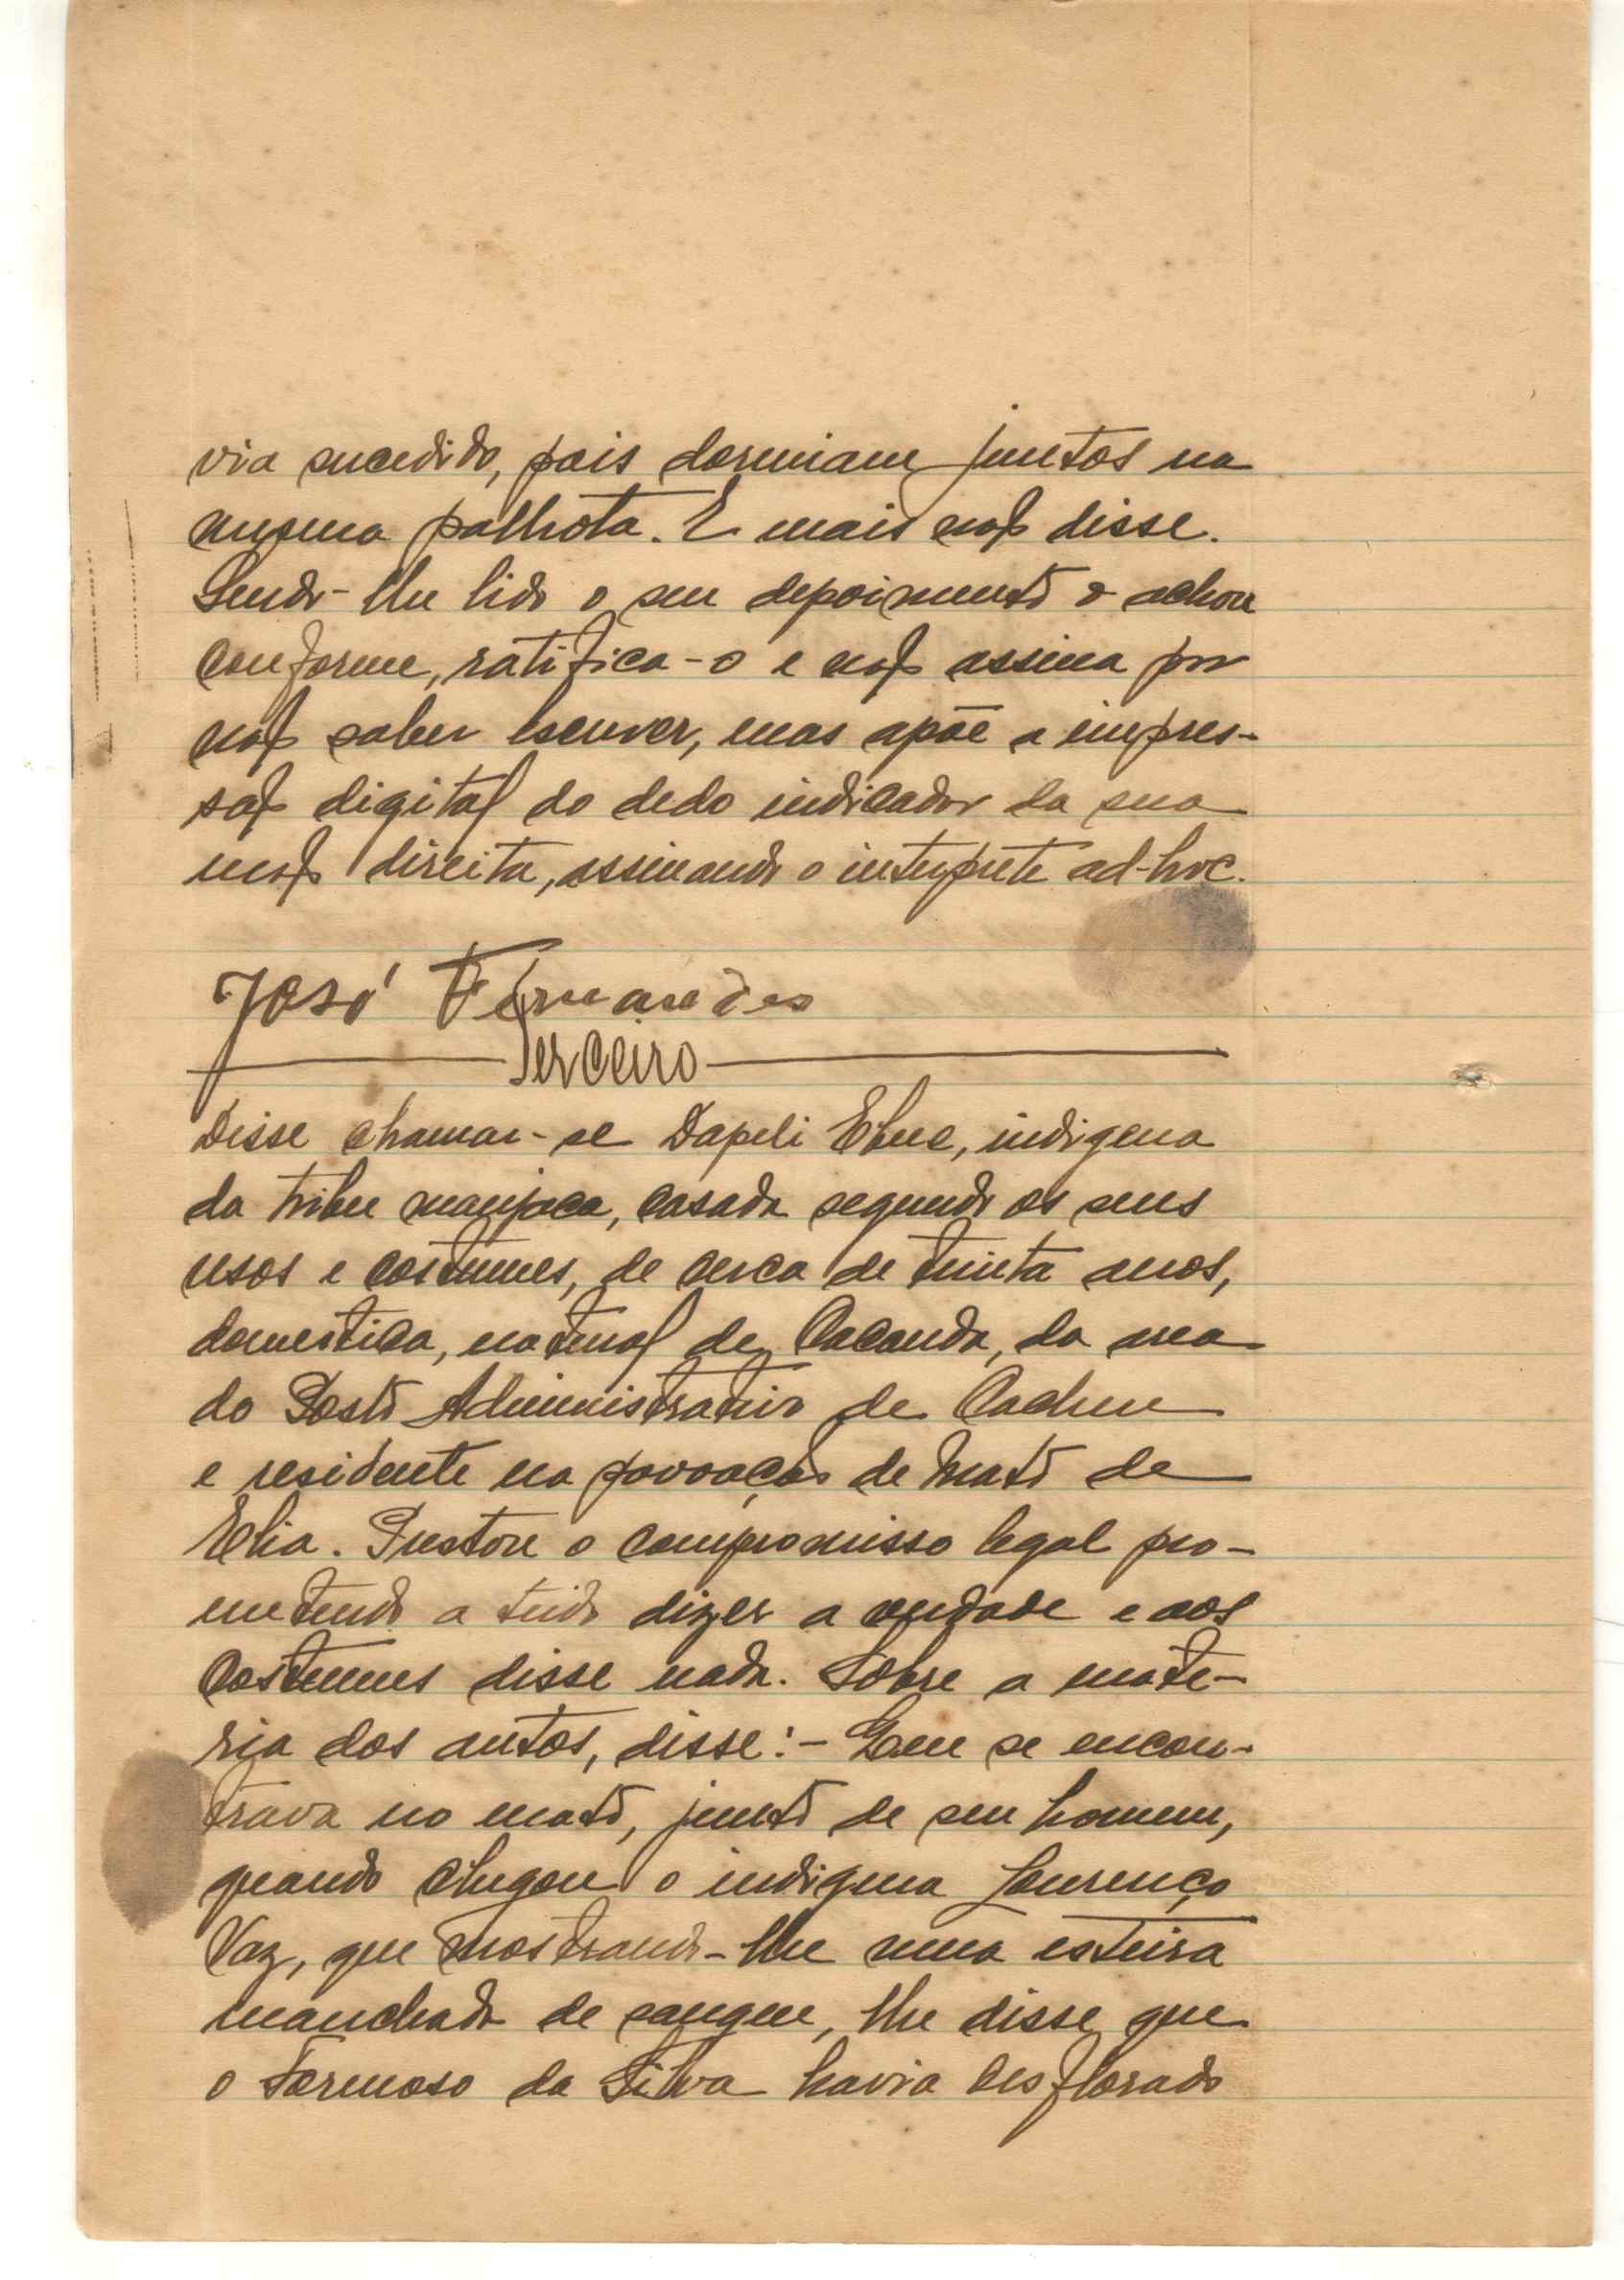 via sucedido, pois dormiam juntos na
mesma palhota. E mais não disse.
Sendo-lhe lido o seu depoimento o achou
conforme, ratifica-o e não assina por
não saber escrever, mas apõe a impres-
são digital do dedo indicador da sua
mão direita, assinando o interprete ad-hoc.
José Fernandes
Terceiro
Disse chamar-se Dapeli, indigena
da tribu manjaca, casada segundo os seus
usos e costumes, de cerca de trinta anos,
domestica, natural de Cacanda, da area
do Posto Administrativo de Cacheu
e residente na povoação de Mato de
Elia. Prestou o compromisso legal pro-
metendo a tudo dizer a verdade e aos
costumes disse nada. Sobre a mate-
ria dos autos, disse:- Que se encon-
trava no mato, junto de seu homem,
quando chegou o indigena Lourenço
Vaz, que mostrando-lhe uma esteira
manchada de sangue, lhe disse que
o Formoso da Silva havia desflorado